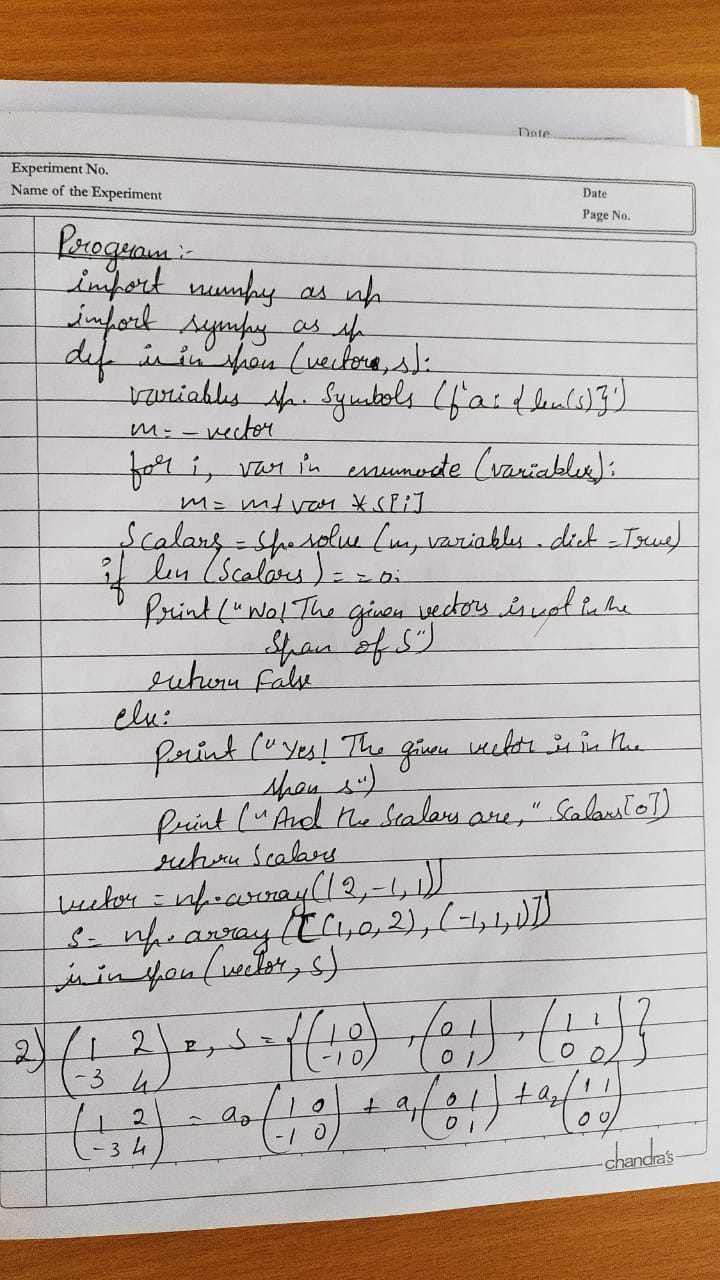 Date
Experiment No.
Name of the Experiment
Date
Page No.
Program :-
import numpy as np
import sympy as sp
def is in span (vectors, s):
variables sp. Symbols (f'a: {len(s)}')
m = - vector
for i, var in enumerate (variables):
m = m + var * s[i]
Scalars = sp. solve (m, variables . dict = True)
if len (Scalars) = = 0:
Print ("No! The given vectors is not in the
Span of S")
return False
else:
Print ("Yes! The given vector is in the
span s")
Print ("And the Scalars are," Scalars[0])
return Scalars
vector = np.array((2, -1, 1))
S = np.array ([(1, 0, 2), (-1, 1, 1)])
is in span (vector, s)
2) (1 2 -3 4) , S = { (1 0 -1 0) , (0 1 0 1) , (1 1 0 0) }
(1 2 -3 4) = a₀ (1 0 -1 0) + a₁ (0 1 0 1) + a₂ (1 1 0 0)
chandra's